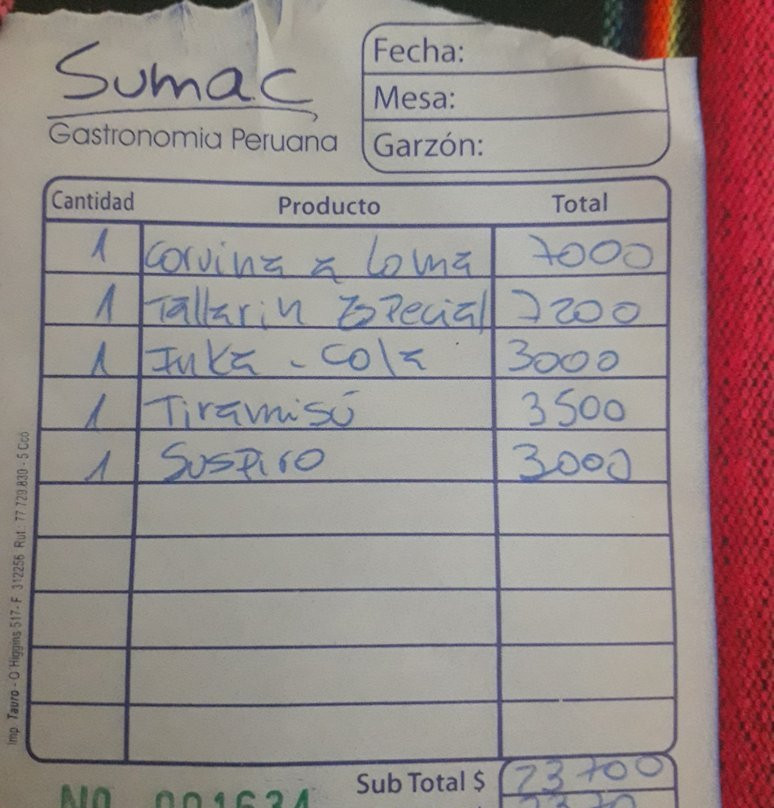 Sumac
Gastronomia Peruana
Fecha:
Mesa:
Garzón:
Cantidad Producto Total
1 Corvina a Loma 7000
1 Tallarin Especial 7200
1 Inka - Cola 3000
1 Tiramisú 3500
1 Suspiro 3000
Sub Total $ 23700
Nº 001634
Imp. Tauro - O'Higgins 517 - F. 312256 Rut.: 77.720.830 - 5 Ccó